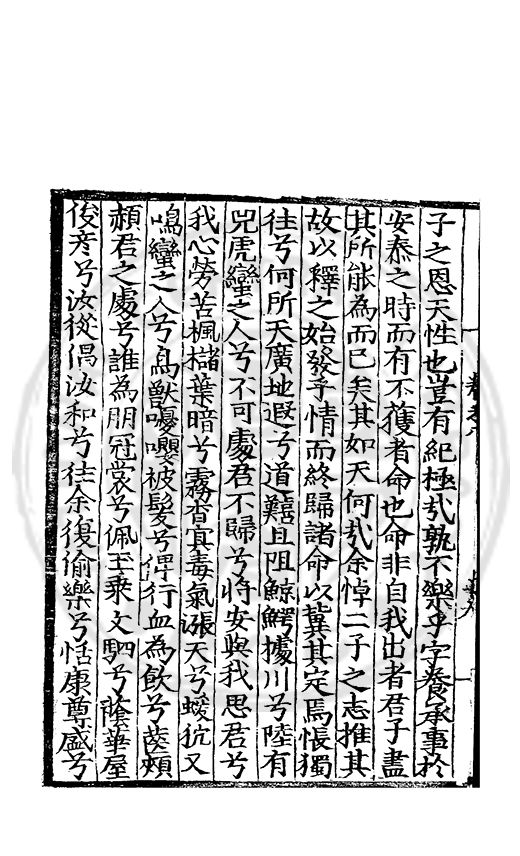 子之恩天性也豈有紀極㢤孰不樂乎字養承事於
安泰之時而有不獲者命也命非自我出者君子盡
其所能為而已矣其如天何㢤余悼二子之志推其
故以釋之始發乎情而終歸諸命以冀其定焉悵獨
往兮何所天廣地遐兮道囏且阻鯨鱷據川兮陸有
兕虎蠻之人兮不可處君不歸兮將安與我思君兮
我心勞苦楓櫧葉暗兮霧杳冥毒氣漲天兮蝯狖又
鳴蠻之人兮鳥獸嚘嚶被髮兮行血為飲兮齒頰
赬君之處兮誰為朋冠裳兮佩玉乘文駟兮蔭華屋
俊彦兮汝從倡汝和兮往余復偷樂兮恬康尊盛兮